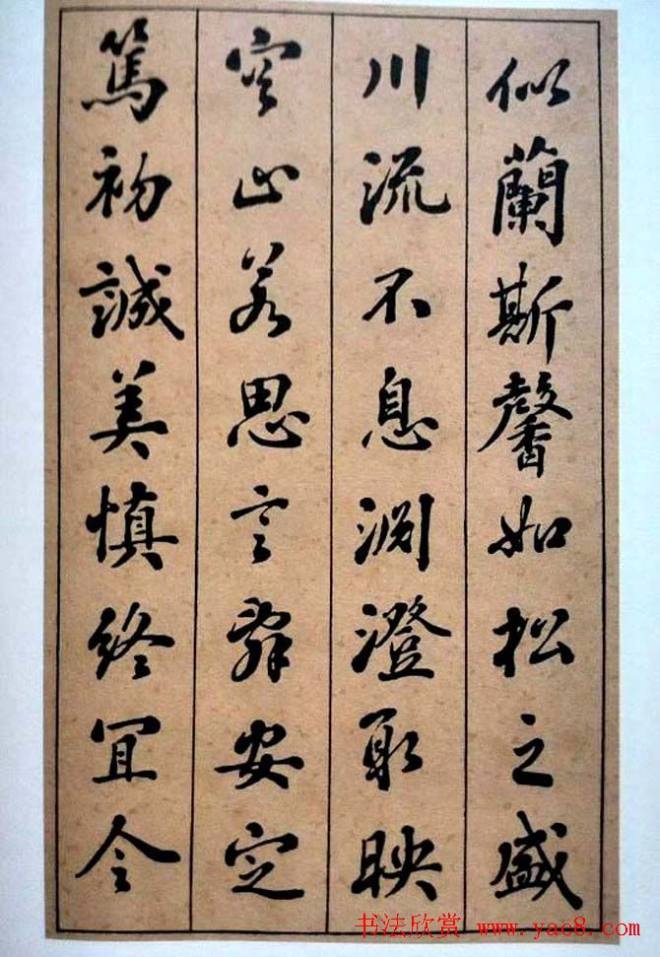 似蘭斯馨如松之盛
川流不息淵澄取映
容止若思言辭安定
篤初誠美慎終宜令
书法欣赏 www.yac8.com